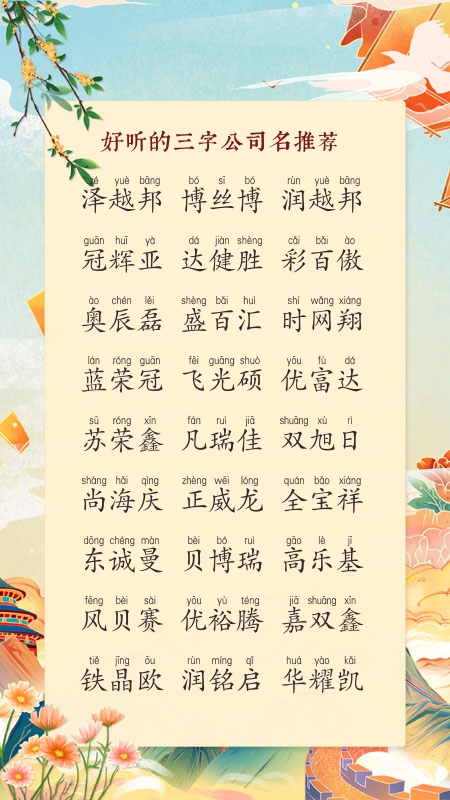 好听的三字公司名推荐
zé yuè bāng bó sī bó rùn yuè bāng
泽越邦 博丝博 润越邦
guān huī yà dá jiàn shèng cǎi bǎi ào
冠辉亚 达健胜 彩百傲
ào chén lěi shèng bǎi huì shí wǎng xiáng
奥辰磊 盛百汇 时网翔
lán róng guān fēi guāng shuò yōu fù dá
蓝荣冠 飞光硕 优富达
sū róng xīn fán ruì jiā shuāng xù rì
苏荣鑫 凡瑞佳 双旭日
shàng hǎi qìng zhèng wēi lóng quán bǎo xiáng
尚海庆 正威龙 全宝祥
dōng chéng màn bèi bó ruì gāo lè jī
东诚曼 贝博瑞 高乐基
fēng bèi sài yōu yù téng jiā shuāng xīn
风贝赛 优裕腾 嘉双鑫
tiě jīng ōu rùn míng qǐ huá yào kǎi
铁晶欧 润铭启 华耀凯